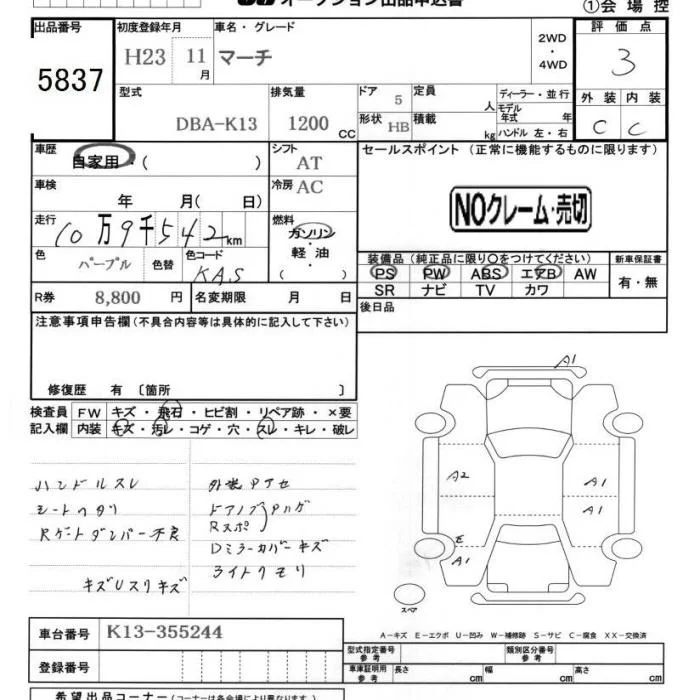 オークション出品申込書
①会場控
出品番号 初度登録年月 車名・グレード 評価点
5837 H23 11月 マーチ 2WD・4WD 3
型式 排気量 ドア 定員 ディーラー・並行 外装 内装
DBA-K13 1200CC 5 人 モデル年式 年 C C
形状 HB 積載 kg ハンドル 左・右
車歴 シフト セールスポイント (正常に機能するものに限ります)
自家用・( ) AT
車検 冷房 AC
年 月( 日) NOクレーム・売切
走行 燃料
10万9千542km ガソリン
軽油
( )
色 パープル 色替 色コード KAS
装備品(純正品に限り○をつけてください) 新車保証書
PS PW ABS エアB AW 有・無
SR ナビ TV カワ
R券 8,800円 名変期限 月 日 後日品
注意事項申告欄(不具合内容等は具体的に記入して下さい)
修復歴 有 〔箇所 〕
検査員 FW キズ・飛石・ヒビ割・リペア跡・×要
記入欄 内装 キズ・汚レ・コゲ・穴・スレ・キレ・破レ
ハンドルスレ 外装アセ
シートヘタリ ドアノブ ハゲ
Rゲートダンパー不良 Rスポ
Dミラーカバーキズ
キズUスリキズ ライトクモリ
A1
A2 A1
A1
E
A1
スペア
A-キズ E-エクボ U-凹み W-補修跡 S-サビ C-腐食 XX-交換済
車台番号 K13-355244
登録番号
型式指定番号 参考 類別区分番号 参考
車庫証明用 参考 長さ cm 幅 cm 高さ cm
希望出品コーナー(コーナーは各会場により異なります)